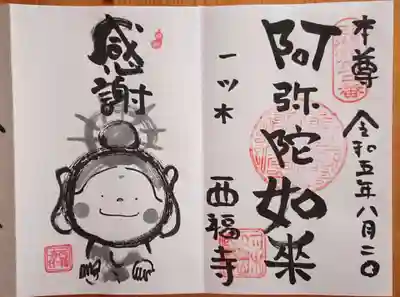 本尊
令和五年八月二〇
阿弥陀如来
一ツ木 西福寺
感謝